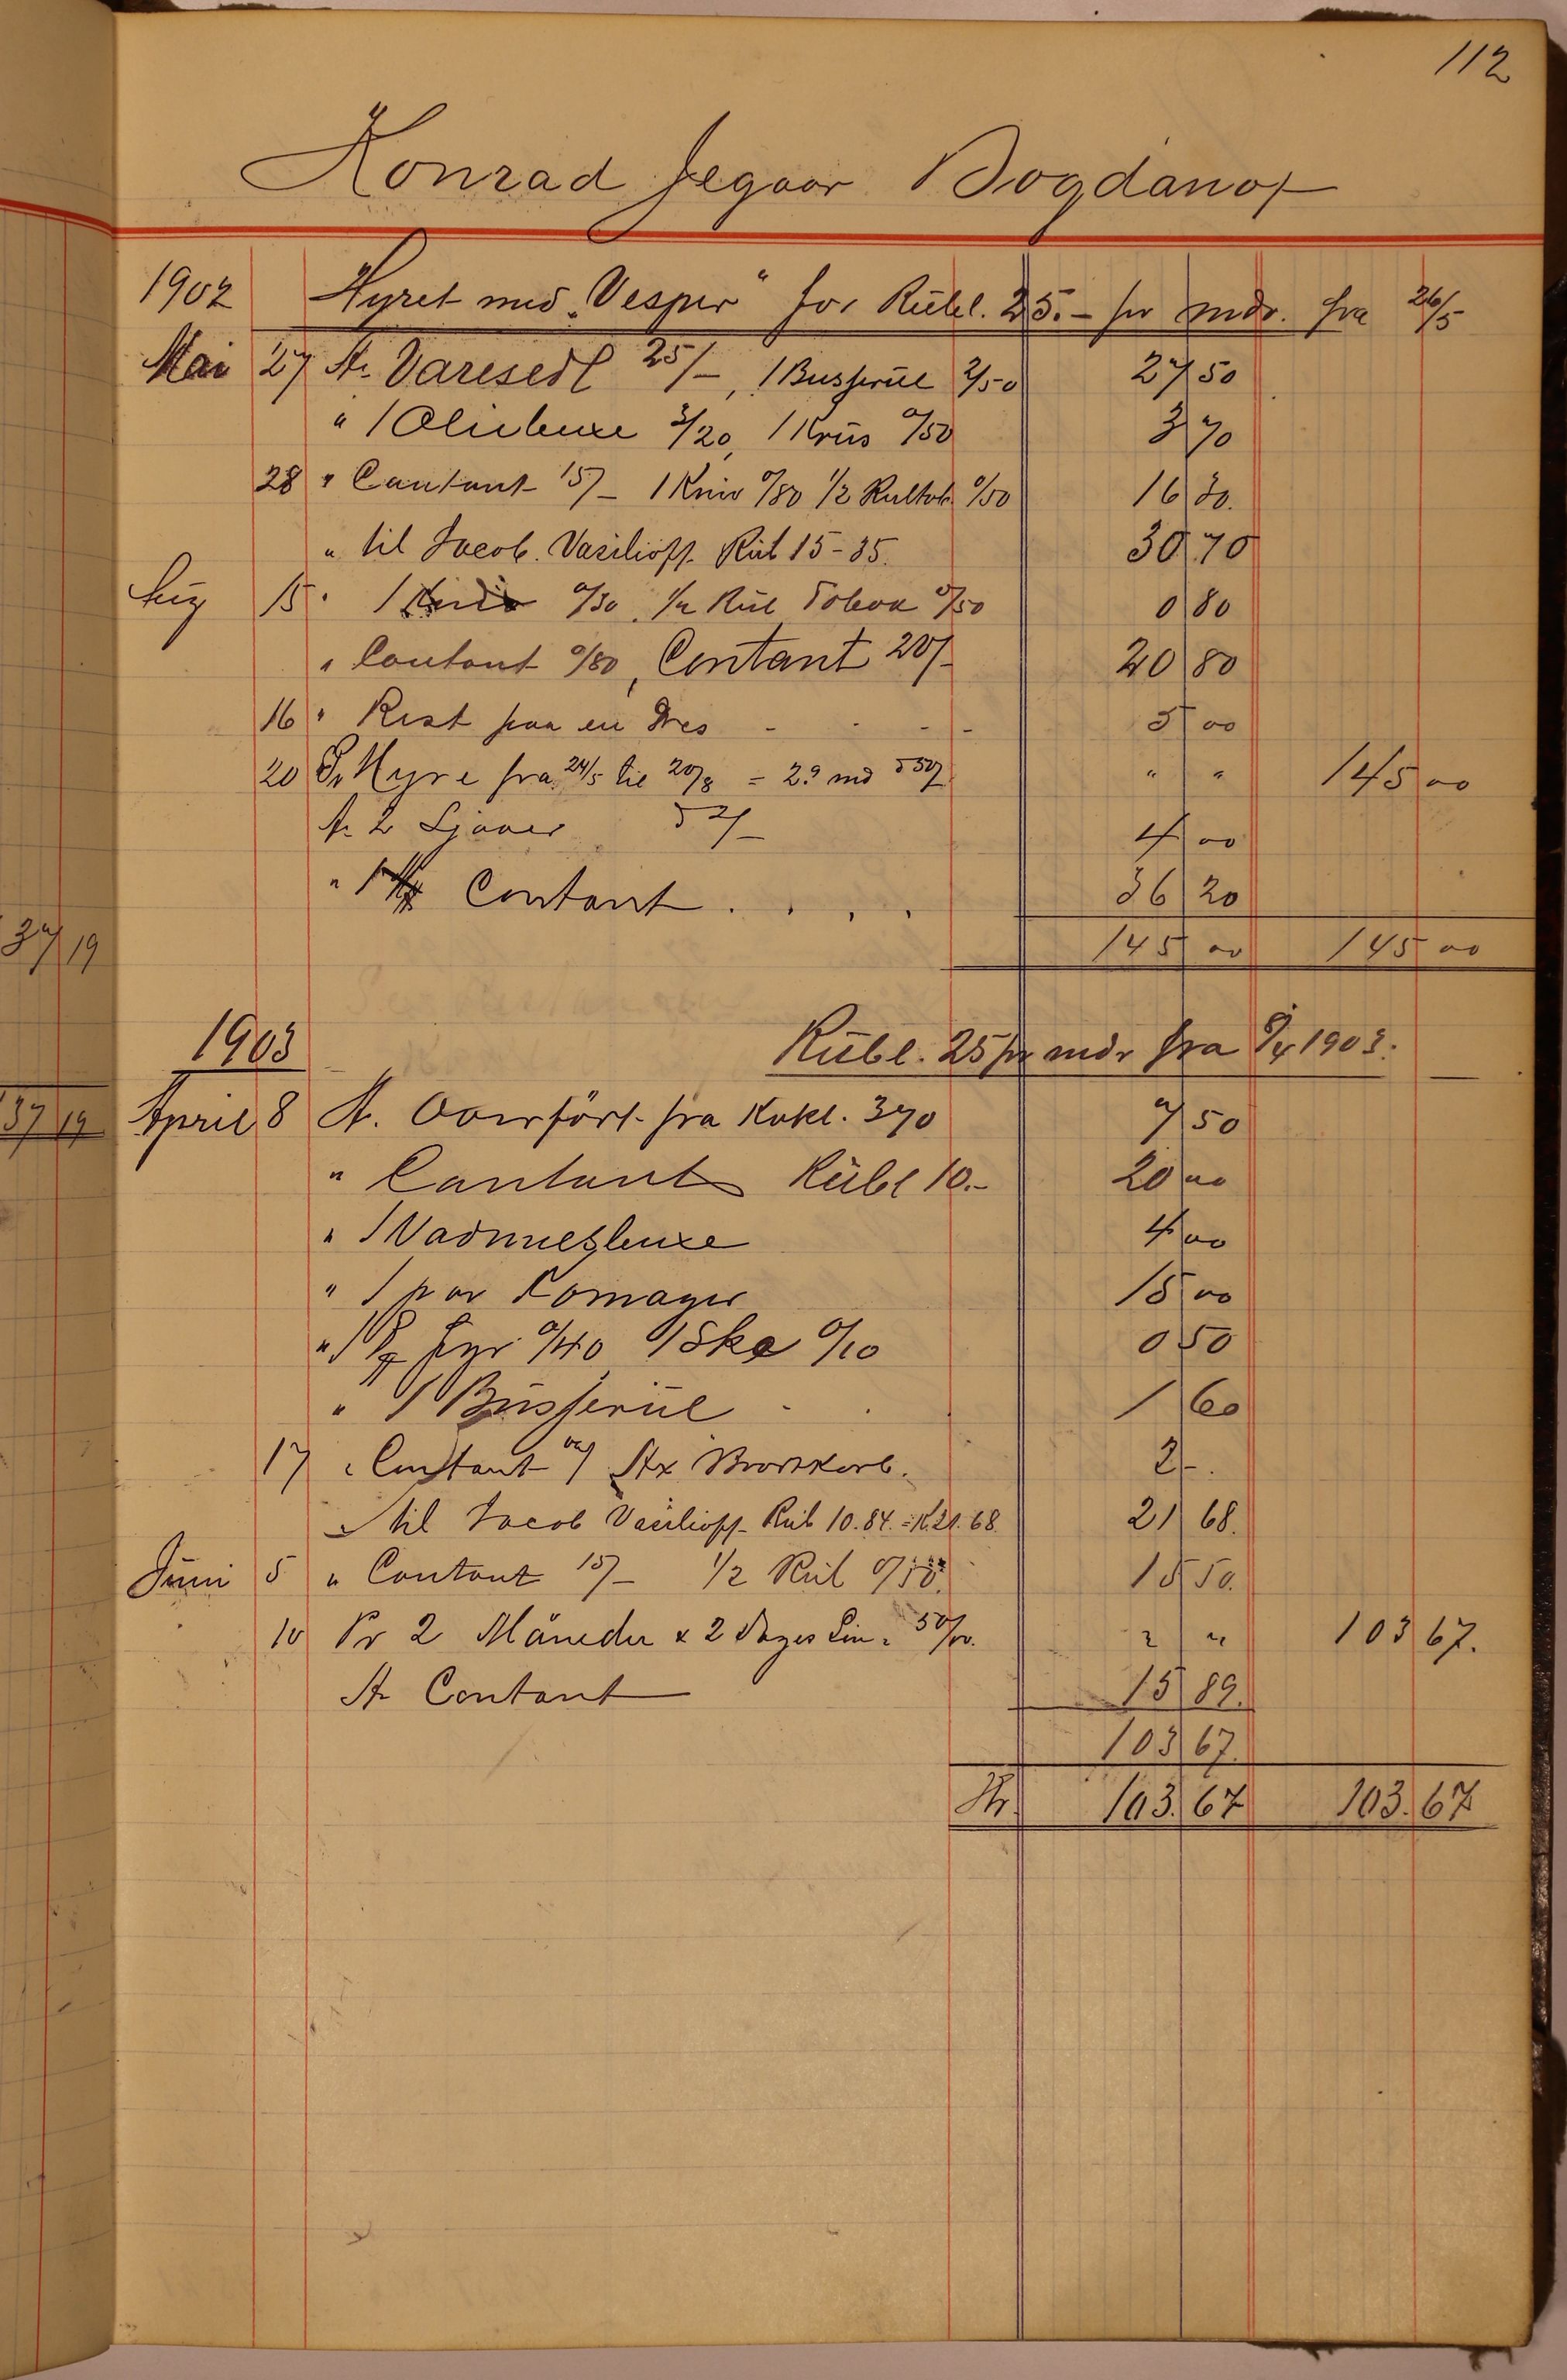 112
Konrad Jegoor Bogdanof
1902 Hyret med "Vesper" for Rubl. 25.- pr mdr. fra 26/5
Mai 27 At Varesedl 25/-, 1 Busserul 2/50 27 50
" 1 Oliebuxe 3/20, 1 Krus 0/50 3 70
28 " Contant 15/- 1 Kniv 0/80 1/2 Rultob 0/50 16 30.
" til Jacob. Vasilioff Rub 15-35. 30 70
Aug 15 " 1 Kniv 0/30. 1/2 Rul Tobak 0/50 0 80
" Contant 0/80, Contant 20/- 20 80
16 " Rest paa en Dres - - - - 5 00
20 Pr Hyre fra 24/5 til 20/8 = 2.9 md 50/ " " 145 00
At 2 Ljaaer 2/- 4 00
" 1 Contant . . . . 36 20
145 00 145 00
1903 Rubl. 25 pr mdr fra 8/4 1903.
April 8 At. Overført fra Kokl. 370 7 50
" Contant Rubl 10.- 20 00
" 1 Vadmelsbuxe 4 00
" 1 par Komager 15 00
" 1 Fyr 0/40 1 Ske 0/10 0 50
" 1 Busserul - . 1 60
17 " Contant 2 -.
" til Jacob Vasilioff Rub 10.84. = K 21.68. 21 68.
Juni 5 " Contant 15/- 1/2 Rul 0/50. 15 50.
10 Pr 2 Måneder & 2 Dages Løn a 50/00. " " 103 67.
At Contant 15 89.
103 67.
Kr. 103. 67 103. 67
37 19
37 19